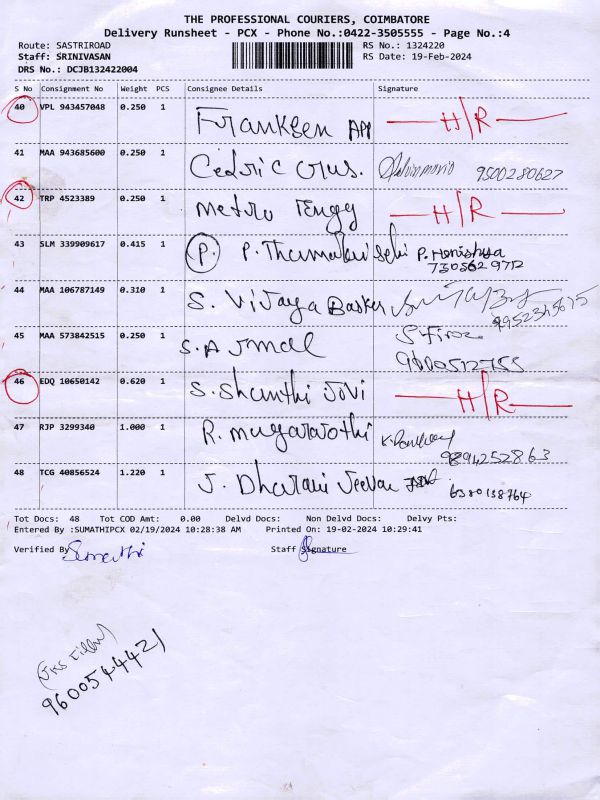 THE PROFESSIONAL COURIERS, COIMBATORE
Delivery Runsheet - PCX - Phone No.:0422-3505555 - Page No.:4
Route: SASTRIROAD RS No.: 1324220
Staff: SRINIVASAN RS Date: 19-Feb-2024
DRS No.: DCJB132422004
S No Consignment No Weight PCS Consignee Details Signature
40 VPL 943457048 0.250 1 H/R
41 MAA 943685600 0.250 1 Cedric crus. 9500280627
42 TRP 4523389 0.250 1 Metro H/R
43 SLM 339909617 0.415 1 (P.) P. P. Honishya
7305629712
44 MAA 106787149 0.310 1 S. Vijaya Basker
9952345675
45 MAA 573842515 0.250 1 S.A Jmal S.firoz
9600512755
46 EDQ 10650142 0.620 1 S. Shanthi Jovi H/R
47 RJP 3299340 1.000 1 R.
9894252863
48 TCG 40856524 1.220 1 J. Dharani Jeevan 6380138764
Tot Docs: 48 Tot COD Amt: 0.00 Delvd Docs: Non Delvd Docs: Delvy Pts:
Entered By :SUMATHIPCX 02/19/2024 10:28:38 AM Printed On: 19-02-2024 10:29:41
Verified By Sumathi Staff Signature
9600544421